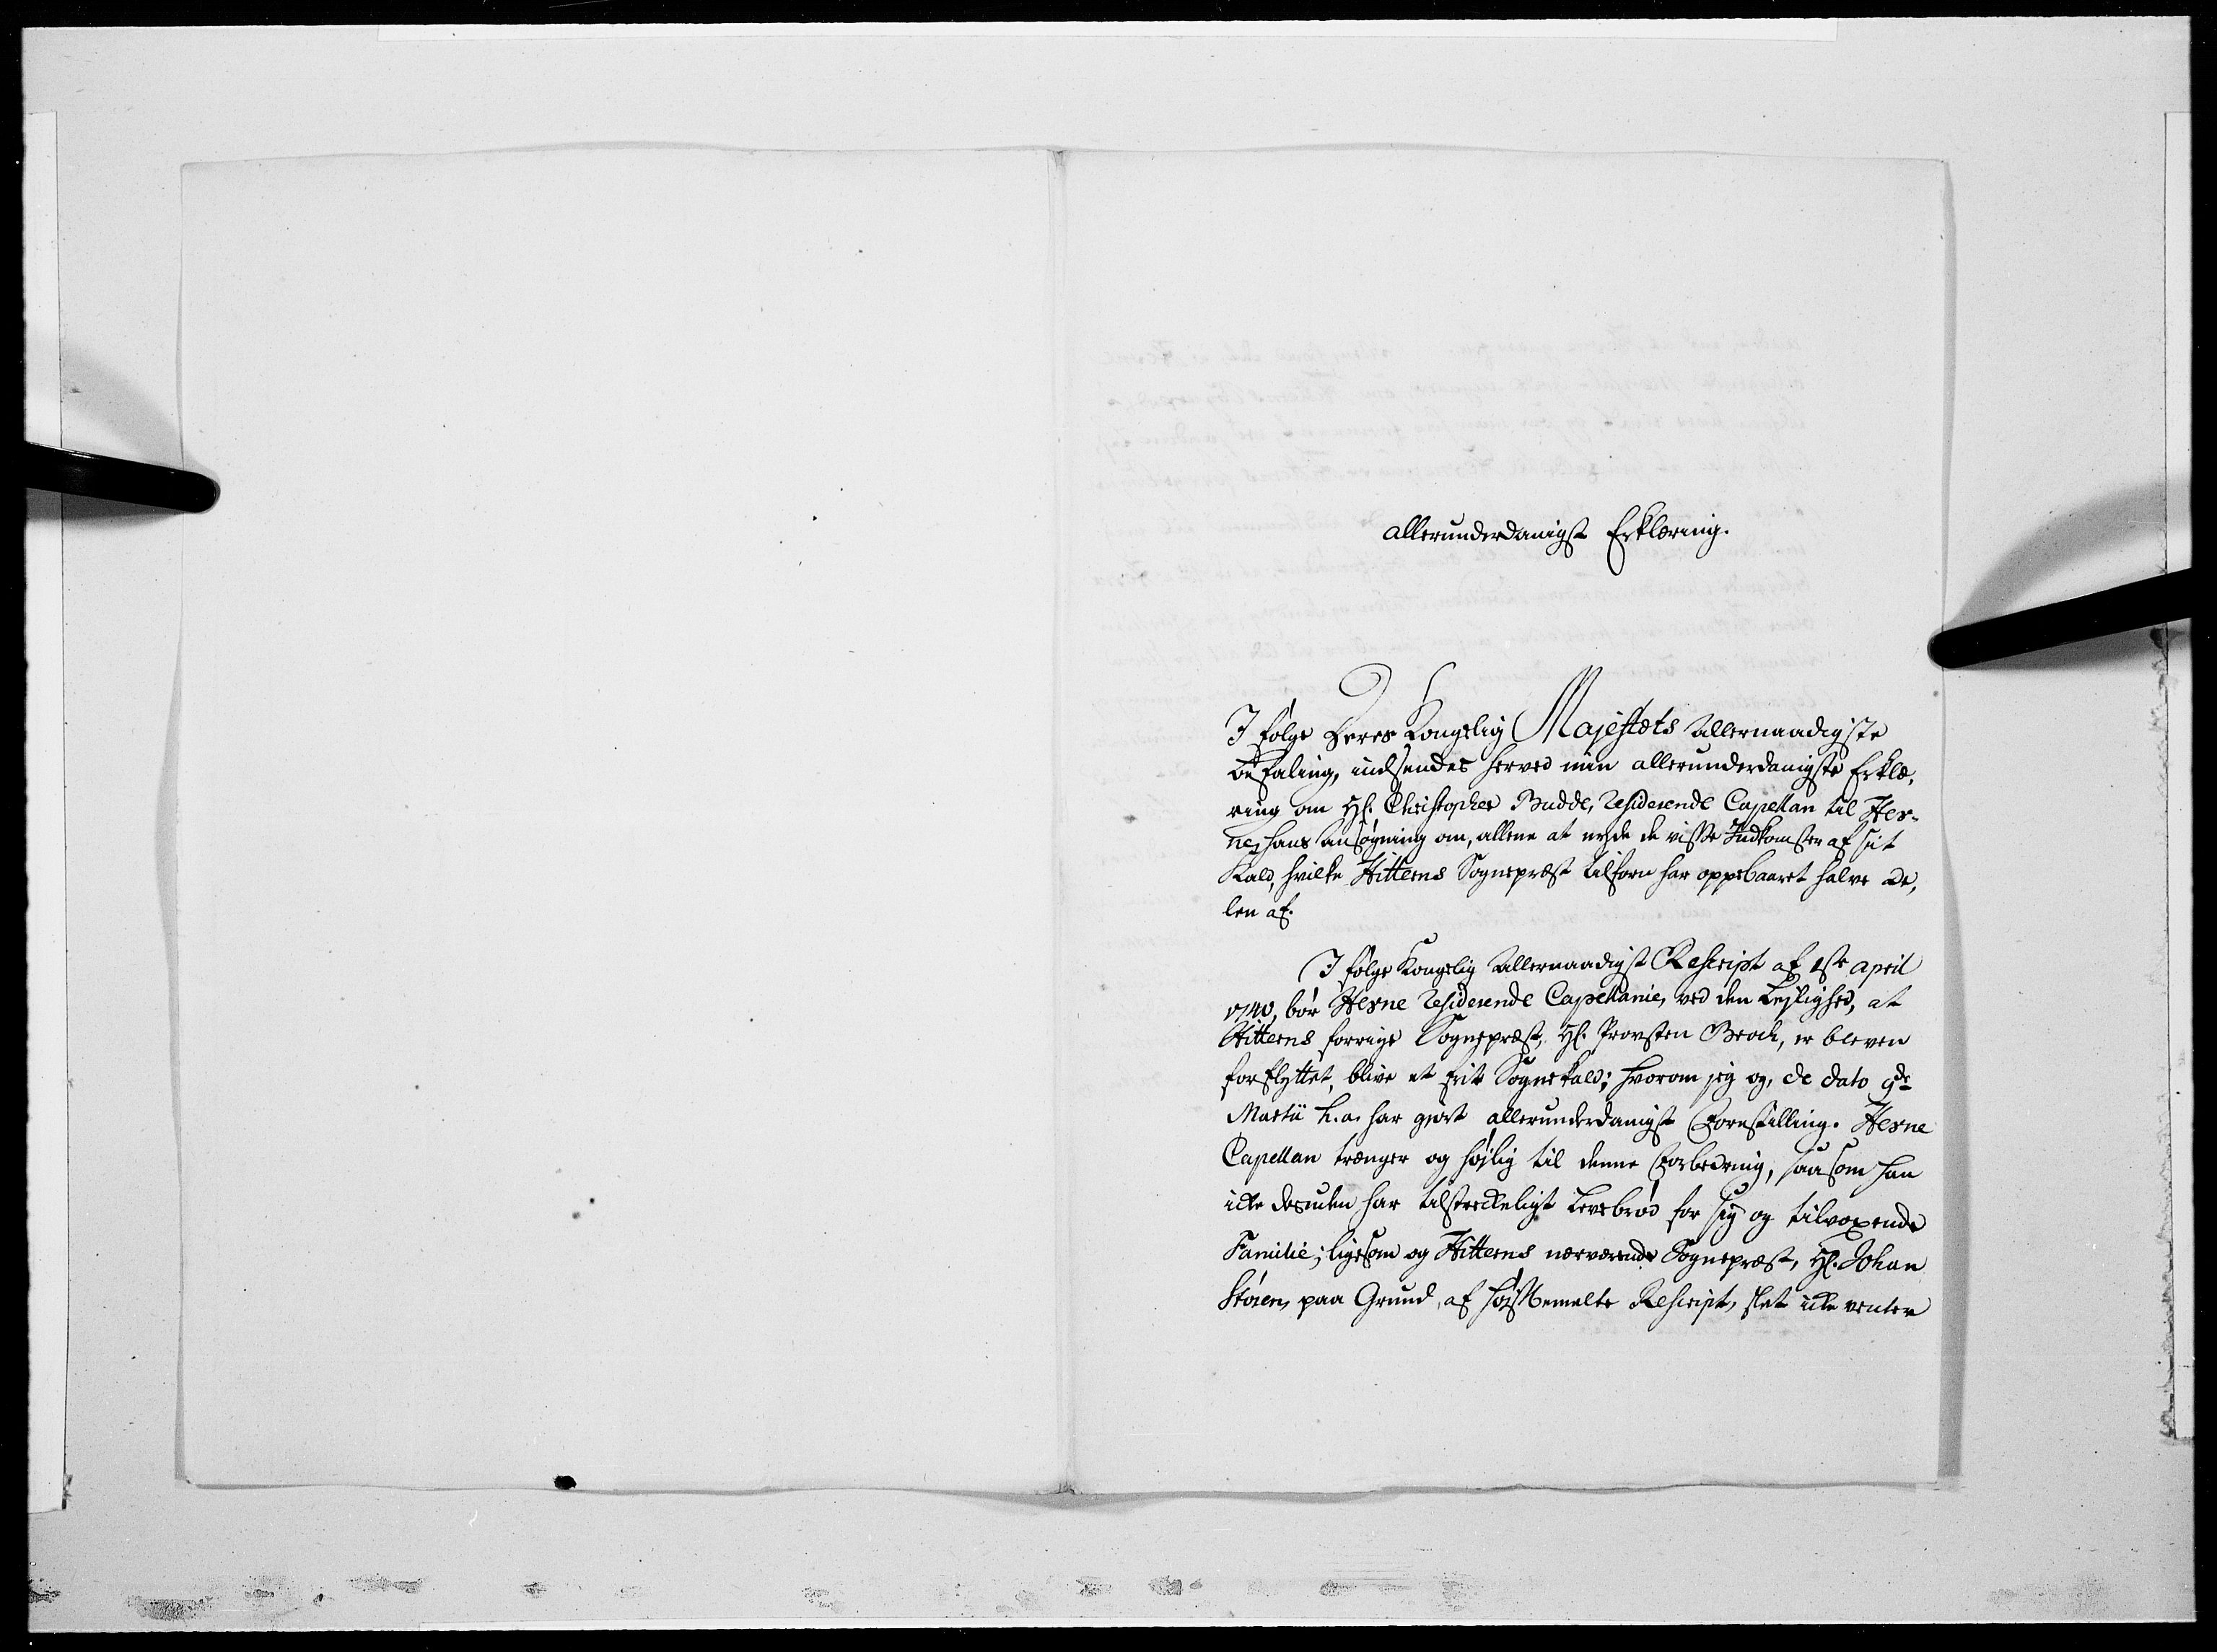 allerunderdanigst Erklæring.
I følge Deres Kongelig Majestæts allernaadigste
befaling, indsendes herved min allerunderdanigste Erklæ-
ring om Hr. Christopher Budde, residerende Capellan til Hev-
ne, hans ansøgning om, allene at nyde de visse Indkomster af sit
Kald, hvilke Hitterens Sognepræst tilforn har oppebaaret halve De-
len af.
I følge Kongelig allernaadigst Rescript af 1ste april
1740, bør Hevne residerende Capellanie, ved den Lejlighed, at
Hitterens forrige Sognepræst, Hr. Provsten Brock, er bleven
forflyttet, blive et frit Sognekald; hvorom jeg og, de dato 9de
Martii h. a. har giort allerunderdanigst Forestilling. Hevne
Capellan trænger og højlig til denne Forbedring, saasom han
icke desuden har tilstreckeligt Levebrød for sig og tilvoxende
Familie; ligesom og Hitterens nærværende Sognepræst, Hr. Johan
Støren, paa Grund af højstbemelte Rescript, slet icke venter